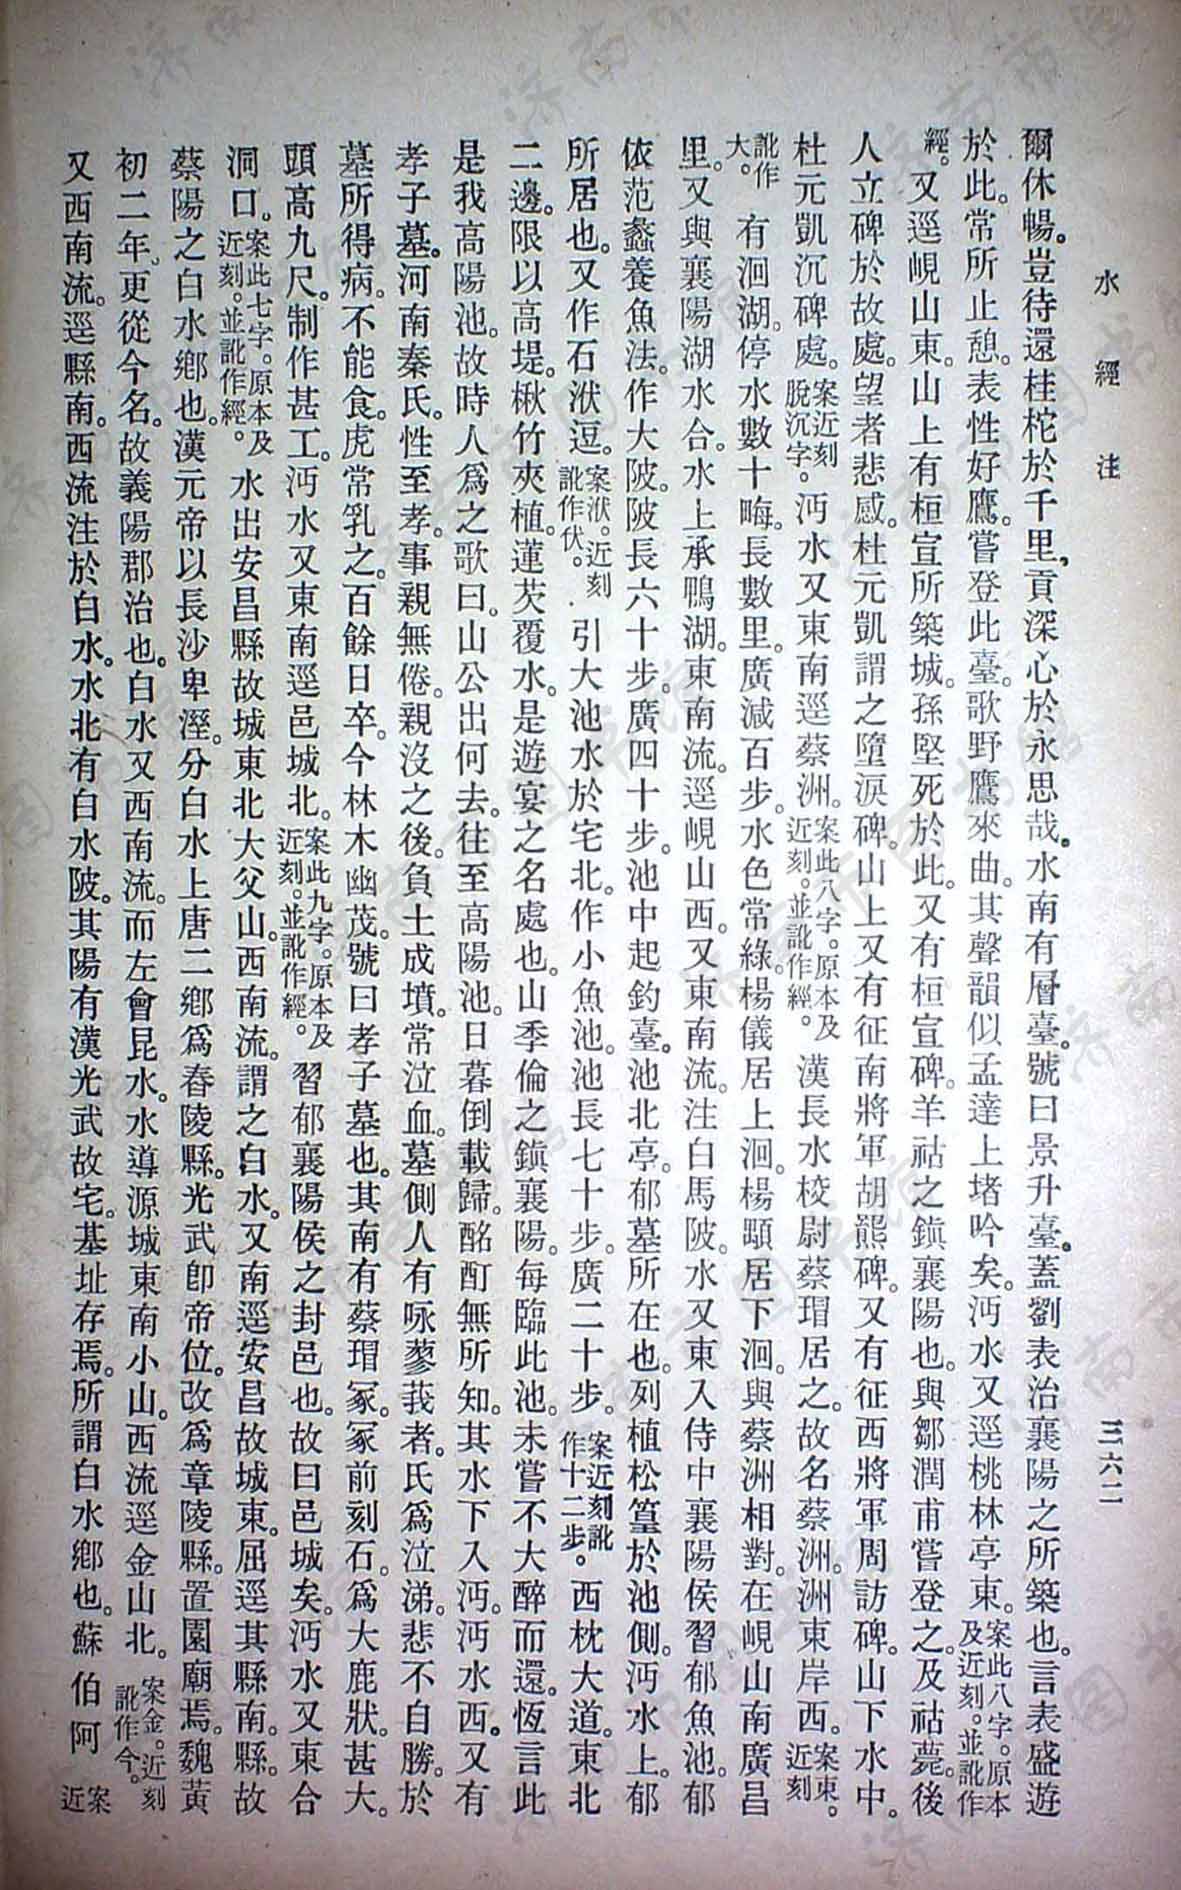 水經注
三六二
爾休暢。豈待還桂柁於千里。貢深心於永思哉。水南有層臺。號曰景升臺。蓋劉表治襄陽之所築也。言表盛遊
於此。常所止憩。表性好鷹。嘗登此臺。歌野鷹來曲。其聲韻似孟達上堵吟矣。沔水又逕桃林亭東。案此八字。原本及近刻。並訛作
經。又逕峴山東。山上有桓宣所築城。孫堅死於此。又有桓宣碑。羊祜之鎮襄陽也。與鄒潤甫嘗登之。及祜薨。後
人立碑於故處。望者悲感。杜元凱謂之墮淚碑。山上又有征南將軍胡羆碑。又有征西將軍周訪碑。山下水中。
杜元凱沉碑處。案近刻脫沉字。沔水又東南逕蔡洲。案此八字。原本及近刻。並訛作經。漢長水校尉蔡瑁居之。故名蔡洲。洲東岸西。案東。近刻
訛作大。有洄湖。停水數十畮。長數里。廣減百步。水色常綠。楊儀居上洄。楊顒居下洄。與蔡洲相對。在峴山南廣昌
里。又與襄陽湖水合。水上承鴨湖。東南流。逕峴山西。又東南流。注白馬陂。水又東入侍中襄陽侯習郁魚池。郁
依范蠡養魚法。作大陂。陂長六十步。廣四十步。池中起釣臺。池北亭。郁墓所在也。列植松篁於池側。沔水上。郁
所居也。又作石洑逗。案洑。近刻訛作伏。引大池水於宅北。作小魚池。池長七十步。廣二十步。案近刻訛作十二步。西枕大道。東北
二邊。限以高堤。楸竹夾植。蓮芡覆水。是遊宴之名處也。山季倫之鎮襄陽。每臨此池。未嘗不大醉而還。恆言此
是我高陽池。故時人爲之歌曰。山公出何去。往至高陽池。日暮倒載歸。酩酊無所知。其水下入沔。沔水西。又有
孝子墓。河南秦氏。性至孝。事親無倦。親沒之後。負土成墳。常泣血。墓側人有咏蓼莪者。氏爲泣涕。悲不自勝。於
墓所得病。不能食。虎常乳之。百餘日卒。今林木幽茂。號曰孝子墓也。其南有蔡瑁冢。冢前刻石。爲大鹿狀。甚大。
頭高九尺。制作甚工。沔水又東南逕邑城北。案此九字。原本及近刻。並訛作經。習郁襄陽侯之封邑也。故曰邑城矣。沔水又東合
洞口。案此七字。原本及近刻。並訛作經。水出安昌縣故城東北大父山。西南流。謂之白水。又南逕安昌故城東。屈逕其縣南。縣。故
蔡陽之白水鄉也。漢元帝以長沙卑溼。分白水上唐二鄉爲舂陵縣。光武卽帝位。改爲章陵縣。置園廟焉。魏黃
初二年。更從今名。故義陽郡治也。白水又西南流。而左會昆水。水導源城東南小山。西流逕金山北。案金。近刻訛作今。
又西南流。逕縣南。西流注於白水。水北有白水陂。其陽有漢光武故宅。基址存焉。所謂白水鄉也。蘇伯阿案近